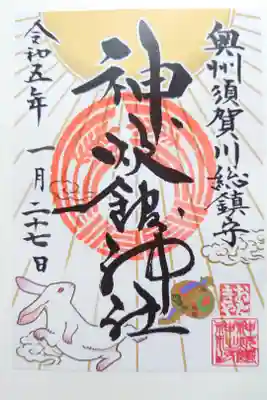 奥州須賀川総鎮守
神炊館神社
令和五年 一月二十七日